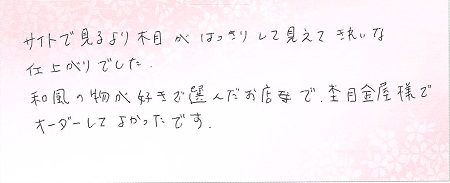 サイトで見るより木目がはっきりして見えてきれいな
仕上がりでした.
和風の物が好きで選んだお店なので.杢目金屋様で
オーダーしてよかったです.